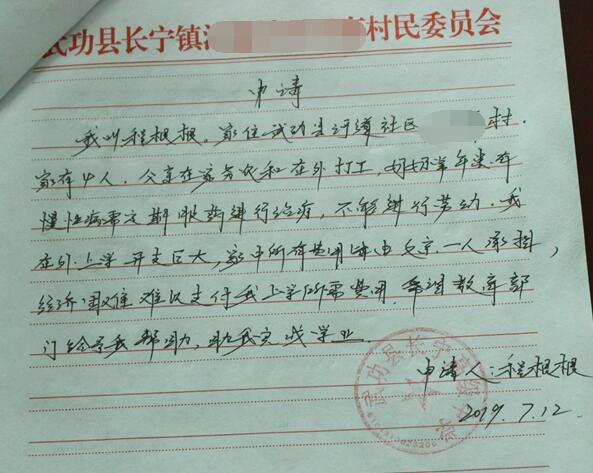 武功县长宁镇 村民委员会
申请
我叫程根根，家住武功县河滩社区 村.
家有4人. 父亲在家务农和在外打工, 母亲常年患有
慢性病需定期服药进行治疗, 不能进行劳动. 我
在外上学开支巨大, 家中所有费用均由父亲一人承担,
经济困难难以支付我上学所需费用. 希望教育部
门给予我帮助, 助我完成学业.
申请人: 程根根
2019. 7. 12.
武功县长宁镇